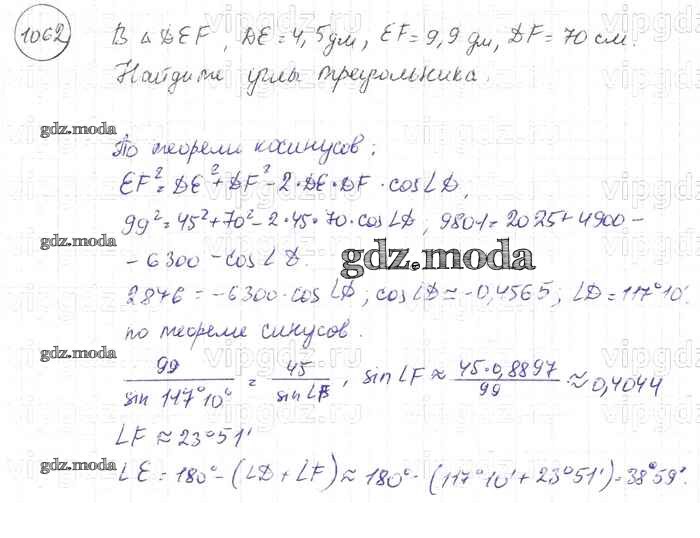 1062 В △DEF, DE = 4,5 дм, EF = 9,9 дм, DF = 70 см.
Найдите углы треугольника.
gdz.moda
По теореме косинусов:
EF² = DE² + DF² - 2·DE·DF·cos∠D,
99² = 45² + 70² - 2·45·70·cos∠D; 9801 = 2025 + 4900 -
gdz.moda
- 6300 - cos∠D.
gdz.moda
2876 = -6300·cos∠D; cos∠D ≈ -0,4565; ∠D = 117°10'
по теореме синусов.
99/sin 117°10' = 45/sin∠F, sin∠F ≈ 45·0,8897/99 ≈ 0,4044
gdz.moda
∠F ≈ 23°51'
∠E = 180° - (∠D + ∠F) ≈ 180° - (117°10' + 23°51') = 38°59'.
gdz.moda